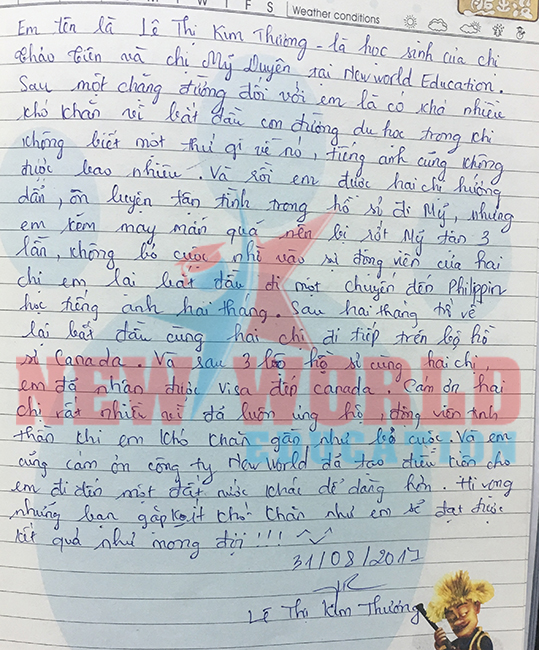 W F S Weather conditions
Em tên là Lê Thị Kim Thương - là học sinh của chị
Thảo Tiên và chị Mỹ Duyên tại New world Education.
Sau một chặng đường đối với em là có khá nhiều
khó khăn vì bắt đầu con đường du học trong khi
không biết một thứ gì về nó, tiếng anh cũng không
được bao nhiêu. Và rồi em được hai chị hướng
dẫn, ôn luyện tận tình trong hồ sơ đi Mỹ, nhưng
em kém may mắn quá nên bị rớt Mỹ tận 3
lần, không bỏ cuộc nhờ vào sự động viên của hai
chị em lại bắt đầu đi một chuyến đến Philippin
học tiếng anh hai tháng. Sau hai tháng trở về
lại bắt đầu cùng hai chị đi tiếp trên bộ hồ
sơ Canada. Và sau 3 bộ hồ sơ cùng hai chị,
em đã nhận được visa đip canada. Cám ơn hai
chị rất nhiều vì đã luôn ủng hộ, động viên tinh
thần khi em khó khăn gần như bỏ cuộc. Và em
cũng cám ơn công ty New World đã tạo điều kiện cho
em đi đến một đất nước khác dễ dàng hơn. Hi vọng
những bạn gặp khó khăn như em sẽ đạt được
kết quả như mong đợi !!!
31/08/2017
Lê Thị Kim Thương
NEW WORLD
EDUCATION